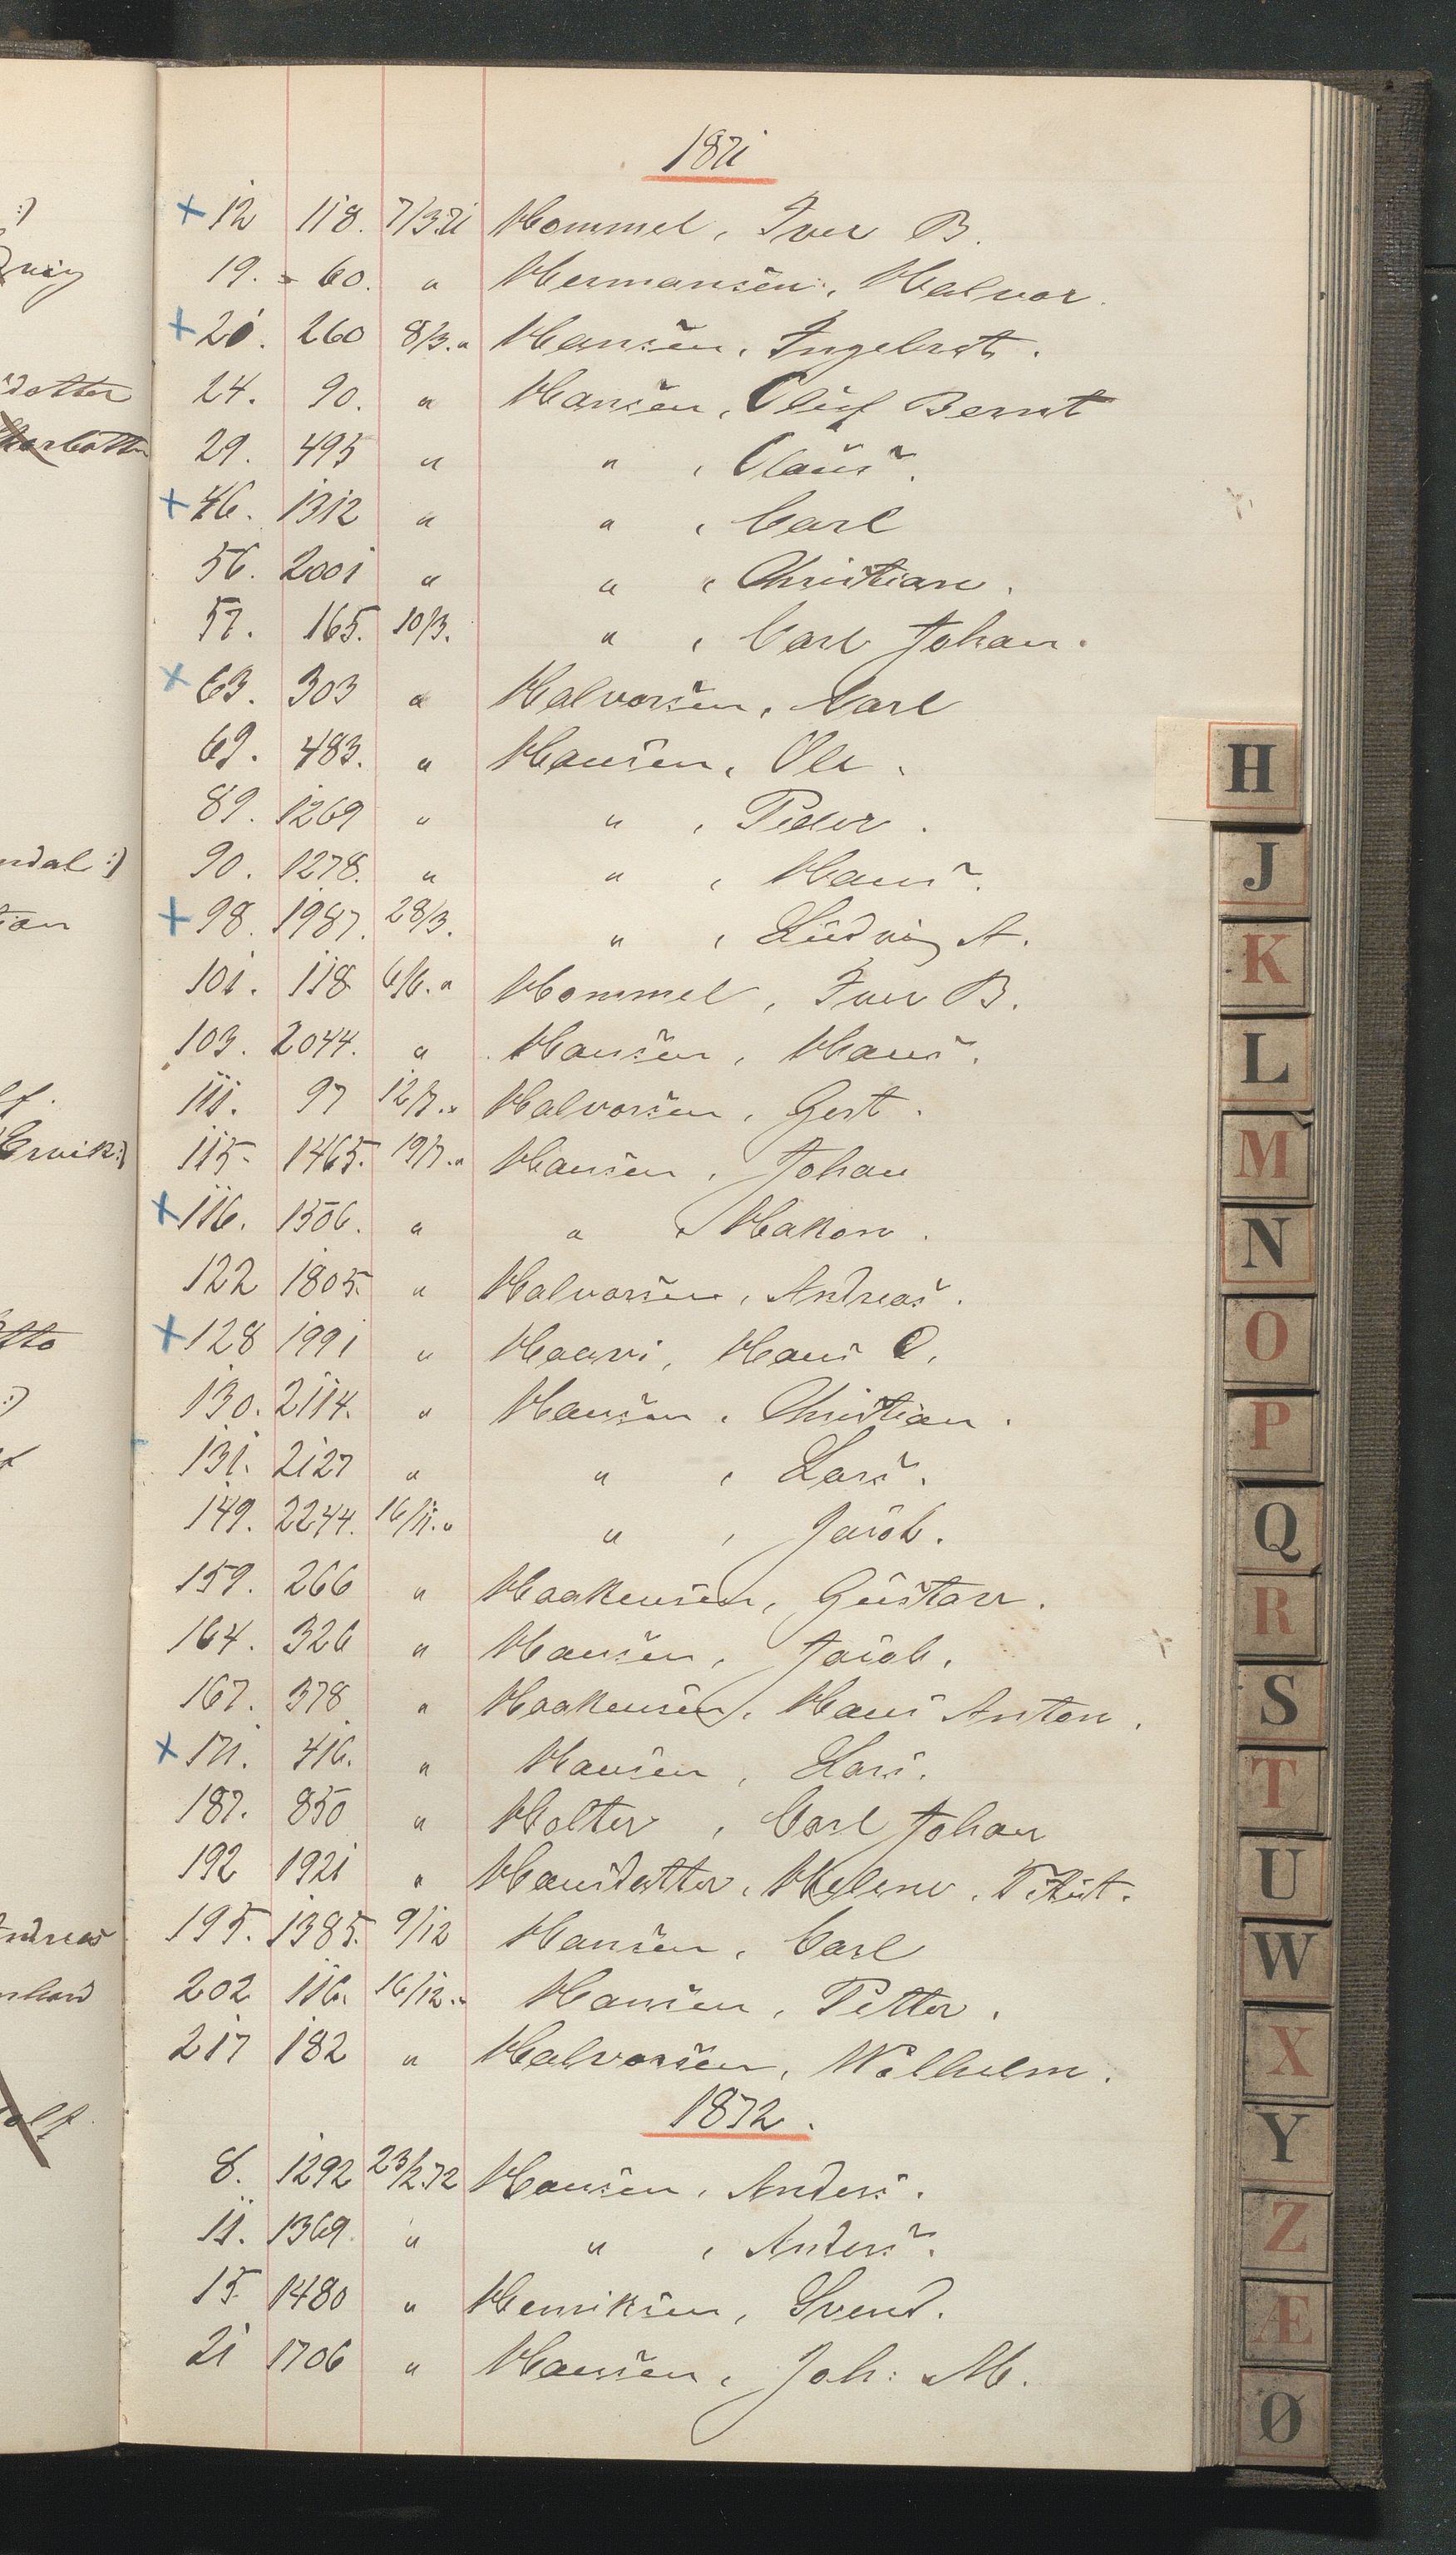 1871
+ 12 118. 7/3.71 Hommel, Iver B.
19. 60. " Hermansen, Halvor.
+ 21. 260 8/3. " Hansen, Ingebret.
24. 90. " Hansen, Oluf Bernt
29. 495 " " , Claus.
+ 46. 1312 " " , Carl
56. 2001 " " , Christian.
57. 165. 10/3. " , Carl Johan.
+ 63. 303 " Halvorsen, Carl
69. 483. " Hansen, Ole.
89. 1269 " " , Peder.
90. 1278. " " , Hans.
+ 98. 1987. 28/3. " , Ludvig A.
101. 118 6/6. " Hommel, Iver B.
103. 2044. " Hansen, Hans.
111. 97 12/7. " Halvorsen, Gert.
115. 1465. 19/7. " Hansen, Johan
+ 116. 1506. " " , Hakon.
122 1805. " Halvorsen, Andreas.
+ 128 1991 " Haavi, Hans O.
130. 2114. " Hansen, Christian.
131. 2127 " " , Lars.
149. 2244. 16/11. " " , Jacob.
159. 266 " Haakensen, Gustav.
164. 326 " Hansen, Jacob.
167. 378 " Haakensen, Hans Anton.
+ 171. 416. " Hansen, Lars.
187. 850 " Holter, Carl Johan
192 1921 " Hansdatter, Helene,
195. 1385. 9/12 Hansen, Carl
202 116. 16/12. " Hansen, Petter.
217 182 " Halvorsen, Wilhelm.
1872.
8. 1292 23/2.72 Hansen, Anders.
11. 1369. " " , Anders.
15. 1480 " Henriksen, Svend.
21 1706 " Hansen, Joh: M.
H
J
K
L
M
N
O
P
Q
R
S
T
U
W
X
Y
Z
Æ
Ø